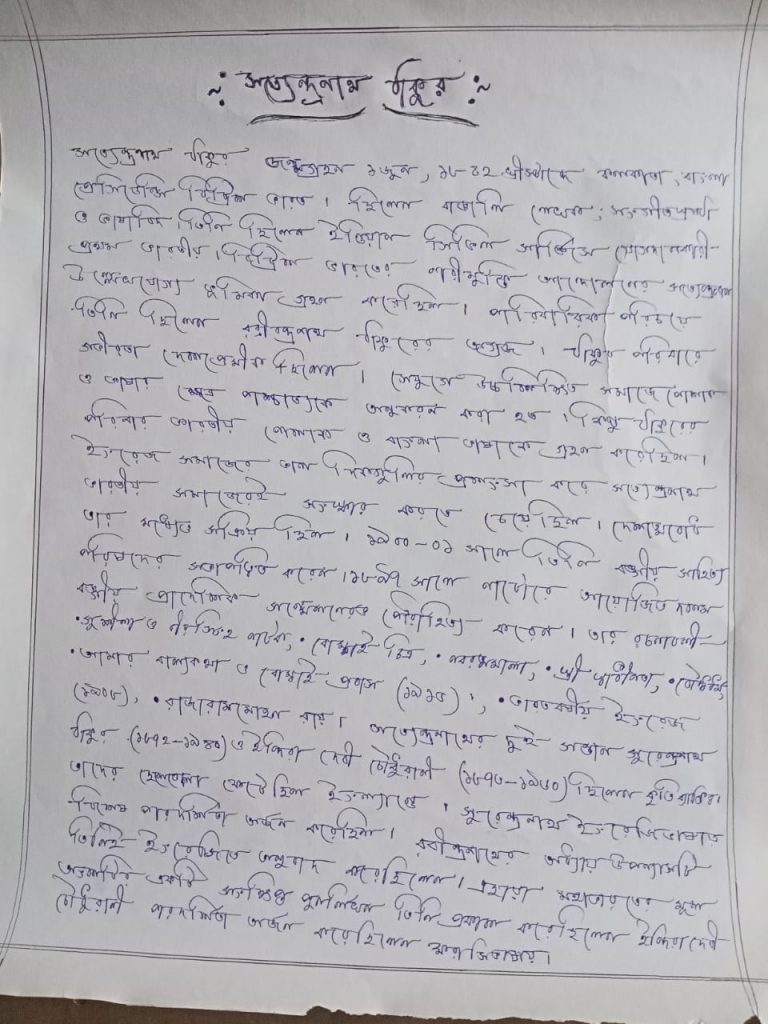 সত্যেন্দ্রনাথ ঠাকুর
সত্যেন্দ্রনাথ ঠাকুর জন্মগ্রহন ১ জুন, ১৮৪২ খ্রীস্টাব্দে কলকাতা, বাংলা
প্রেসিডেন্সি ব্রিটিশ ভারত। ছিলেন বাঙালি লেখক, সংগীতস্রষ্টা
ও ভাষাবিদ। তিনি ছিলেন ইন্ডিয়ান সিভিল সার্ভিসে যোগদানকারী
প্রথম ভারতীয়। ব্রিটিশ ভারতের নারীমুক্তি আন্দোলনের সত্যেন্দ্রনাথ
উল্লেখযোগ্য ভূমিকা গ্রহন করেছিল। পারিবারিক পরিচয়ে
তিনি ছিলেন রবীন্দ্রনাথ ঠাকুরের অগ্রজ। ঠাকুর পরিবারে
সকলেই দেশপ্রেমিক ছিলেন। সেযুগে উচ্চশিক্ষিত সমাজে পোশাক
ও ভাষার ক্ষেত্রে পাশ্চাত্যকে অনুকরন করা হত। কিন্তু ঠাকুরের
পরিবার ভারতীয় পোশাক ও বাংলা ভাষাকে গ্রহন করেছিল।
ইংরেজ সমাজের ভাল দিকগুলির প্রশংসা করে সত্যেন্দ্রনাথ
ভারতীয় সমাজেরই সংস্কার করতে চেয়েছিল। দেশাত্মবোধ
তার মধ্যেও সক্রিয় ছিল। ১৯০০-০১ সালে তিনি বঙ্গীয় সাহিত্য
পরিষদের সভাপতিত্ব করেন। ১৮৯৭ সালে নাটোরে আয়োজিত দশম
বঙ্গীয় প্রাদেশিক সম্মেলনেরও পৌরহিত্য করেন। তার রচনাবলী-
• সুশীলা ও বীরসিংহ নাটক, • বোম্বাই চিত্র, • নবরত্নমালা, • স্ত্রী স্বাধীনতা, • বৌদ্ধধর্ম,
• আমার বাল্যকথা ও বোম্বাই প্রবাস (১৯১৫), • ভারতবর্ষীয় ইংরেজ
(১৯০৮), • রাজা রামমোহন রায়। সত্যেন্দ্রনাথের দুই সন্তান সুরেন্দ্রনাথ
ঠাকুর (১৮৭২-১৯৪০) ও ইন্দিরা দেবী চৌধুরানী (১৮৭৩-১৯৬০) ছিলেন কৃতি ব্যক্তি।
তাদের ছেলেবেলা কেটেছিল ইংল্যান্ডে। সুরেন্দ্রনাথ ইংরেজিভাষায়
বিশেষ পারদর্শিতা অর্জন করেছিল। রবীন্দ্রনাথের উপন্যাসটি
তিনিই ইংরেজিতে অনুবাদ করেছিলেন। এছাড়া মহাভারতের মূল
একটি সংক্ষিপ্ত পুনর্লিখন তিনি প্রকাশ করেছিলেন ইন্দিরা দেবী
চৌধুরানী পারদর্শিতা অর্জন করেছিলেন ফরাসিভাষায়।